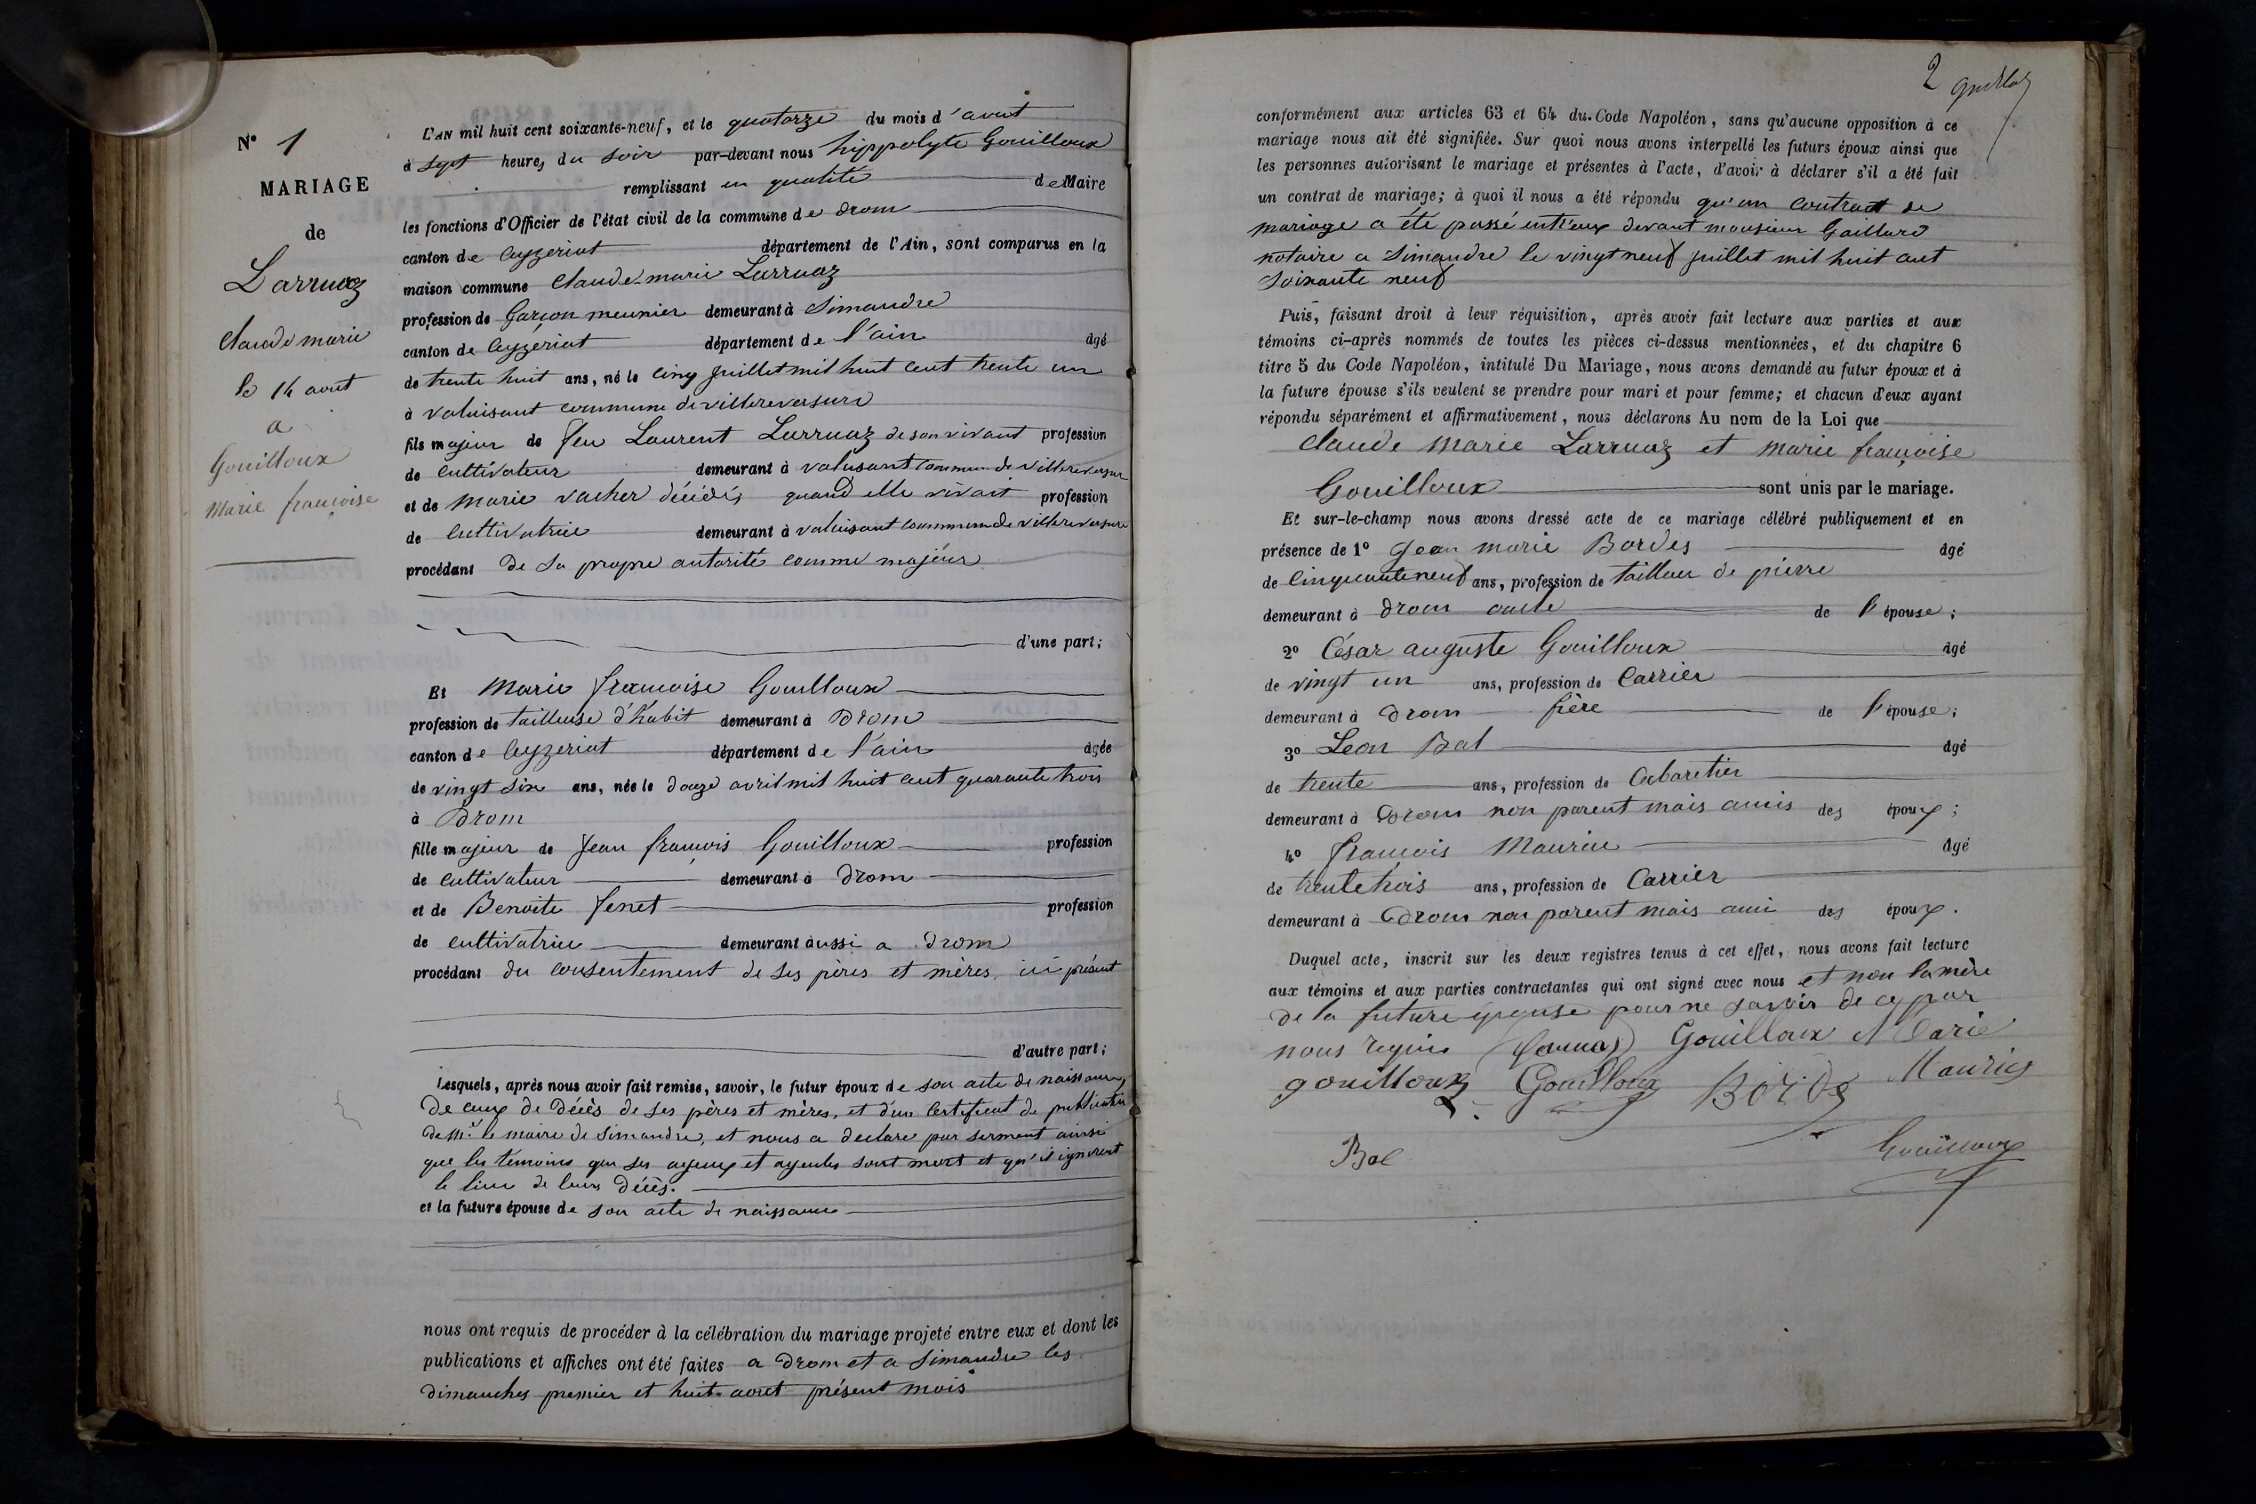 N° 1
MARIAGE
de
Larruaz
Claude marie
le 14 aout
a
Gouilloux
Marie françoise
L'AN mil huit cent soixante-neuf, et le quatorze du mois d'aout
à sept heures du soir par-devant nous hippolyte Gouilloux
remplissant en qualité de Maire
les fonctions d'Officier de l'état civil de la commune de Drom
canton de Ceyzeriat département de l'Ain, sont comparus en la
maison commune Claude-marie Larruaz
profession de Garçon meunier demeurant à Simandre
canton de Ceyzériat département de l'ain âgé
de trente huit ans, né le cinq Juillet mil huit cent trente un
à valuisant commune de villereversure
fils majeur de feu Laurent Larruaz de son vivant profession
de cultivateur demeurant à valuisant commune de villereversure
et de marie vacher décédés quand elle vivait profession
de Cultivatrice demeurant à valuisant commune de villereversure
procédant de sa propre autorité comme majeur
d'une part;
Et Marie françoise Gouilloux
profession de tailleuse d'habit demeurant à Drom
canton de Ceyzeriat département de l'ain âgée
de vingt six ans, née le douze avril mil huit cent quarante trois
à Drom
fille majeur de Jean françois Gouilloux profession
de Cultivateur demeurant à Drom
et de Benoite fenet profession
de cultivatrice demeurant aussi a Drom
procédant du consentement de ses pères et mères, ici présent
d'autre part;
Lesquels, après nous avoir fait remise, savoir, le futur époux de son acte de naissance,
De ceux de Décès de ses pères et mères, et d'un Certificat de publication
de Mr le maire de Simandre, et nous a declare par serment ainsi
que les témoins que ses ayeux et ayeules sont mort et qu'il ignorent
le lieu de leurs Décès.
et la future épouse de son acte de naissance
nous ont requis de procéder à la célébration du mariage projeté entre eux et dont les
publications et affiches ont été faites a Drom et a Simandre les
dimanches premier et huit aout présent mois
2
conformément aux articles 63 et 64 du Code Napoléon, sans qu'aucune opposition à ce
mariage nous ait été signifiée. Sur quoi nous avons interpellé les futurs époux ainsi que
les personnes autorisant le mariage et présentes à l'acte, d'avoir à déclarer s'il a été fait
un contrat de mariage; à quoi il nous a été répondu qu'un contract de
mariage a été passé entr'eux devant monsieur Gaillard
notaire a Simandre le vingt neuf juillet mil huit cent
soixante neuf
Puis, faisant droit à leur réquisition, après avoir fait lecture aux parties et aux
témoins ci-après nommés de toutes les pièces ci-dessus mentionnées, et du chapitre 6
titre 5 du Code Napoléon, intitulé Du Mariage, nous avons demandé au futur époux et à
la future épouse s'ils veulent se prendre pour mari et pour femme; et chacun d'eux ayant
répondu séparément et affirmativement, nous déclarons Au nom de la Loi que
Claude Marie Larruaz et Marie françoise
Gouilloux sont unis par le mariage.
Et sur-le-champ nous avons dressé acte de ce mariage célébré publiquement et en
présence de 1° Jean marie Bordes âgé
de Cinquante neuf ans, profession de tailleur de pierre
demeurant à Drom oncle de l'épouse;
2° César auguste Gouilloux âgé
de vingt un ans, profession de Carrier
demeurant à Drom frère de l'épouse;
3° Leon Bal âgé
de trente ans, profession de Cabaretier
demeurant à Drom non parent mais amis des époux;
4° françois Maurice âgé
de trente trois ans, profession de Carrier
demeurant à Drom non parent mais ami des époux.
Duquel acte, inscrit sur les deux registres tenus à cet effet, nous avons fait lecture
aux témoins et aux parties contractantes qui ont signé avec nous et non la mère
de la future épouse pour ne savoir de ce par
nous requis Larruaz Gouilloux Marie
gouilloux Gouilloux Bordes Maurice
Bal Gouilloux